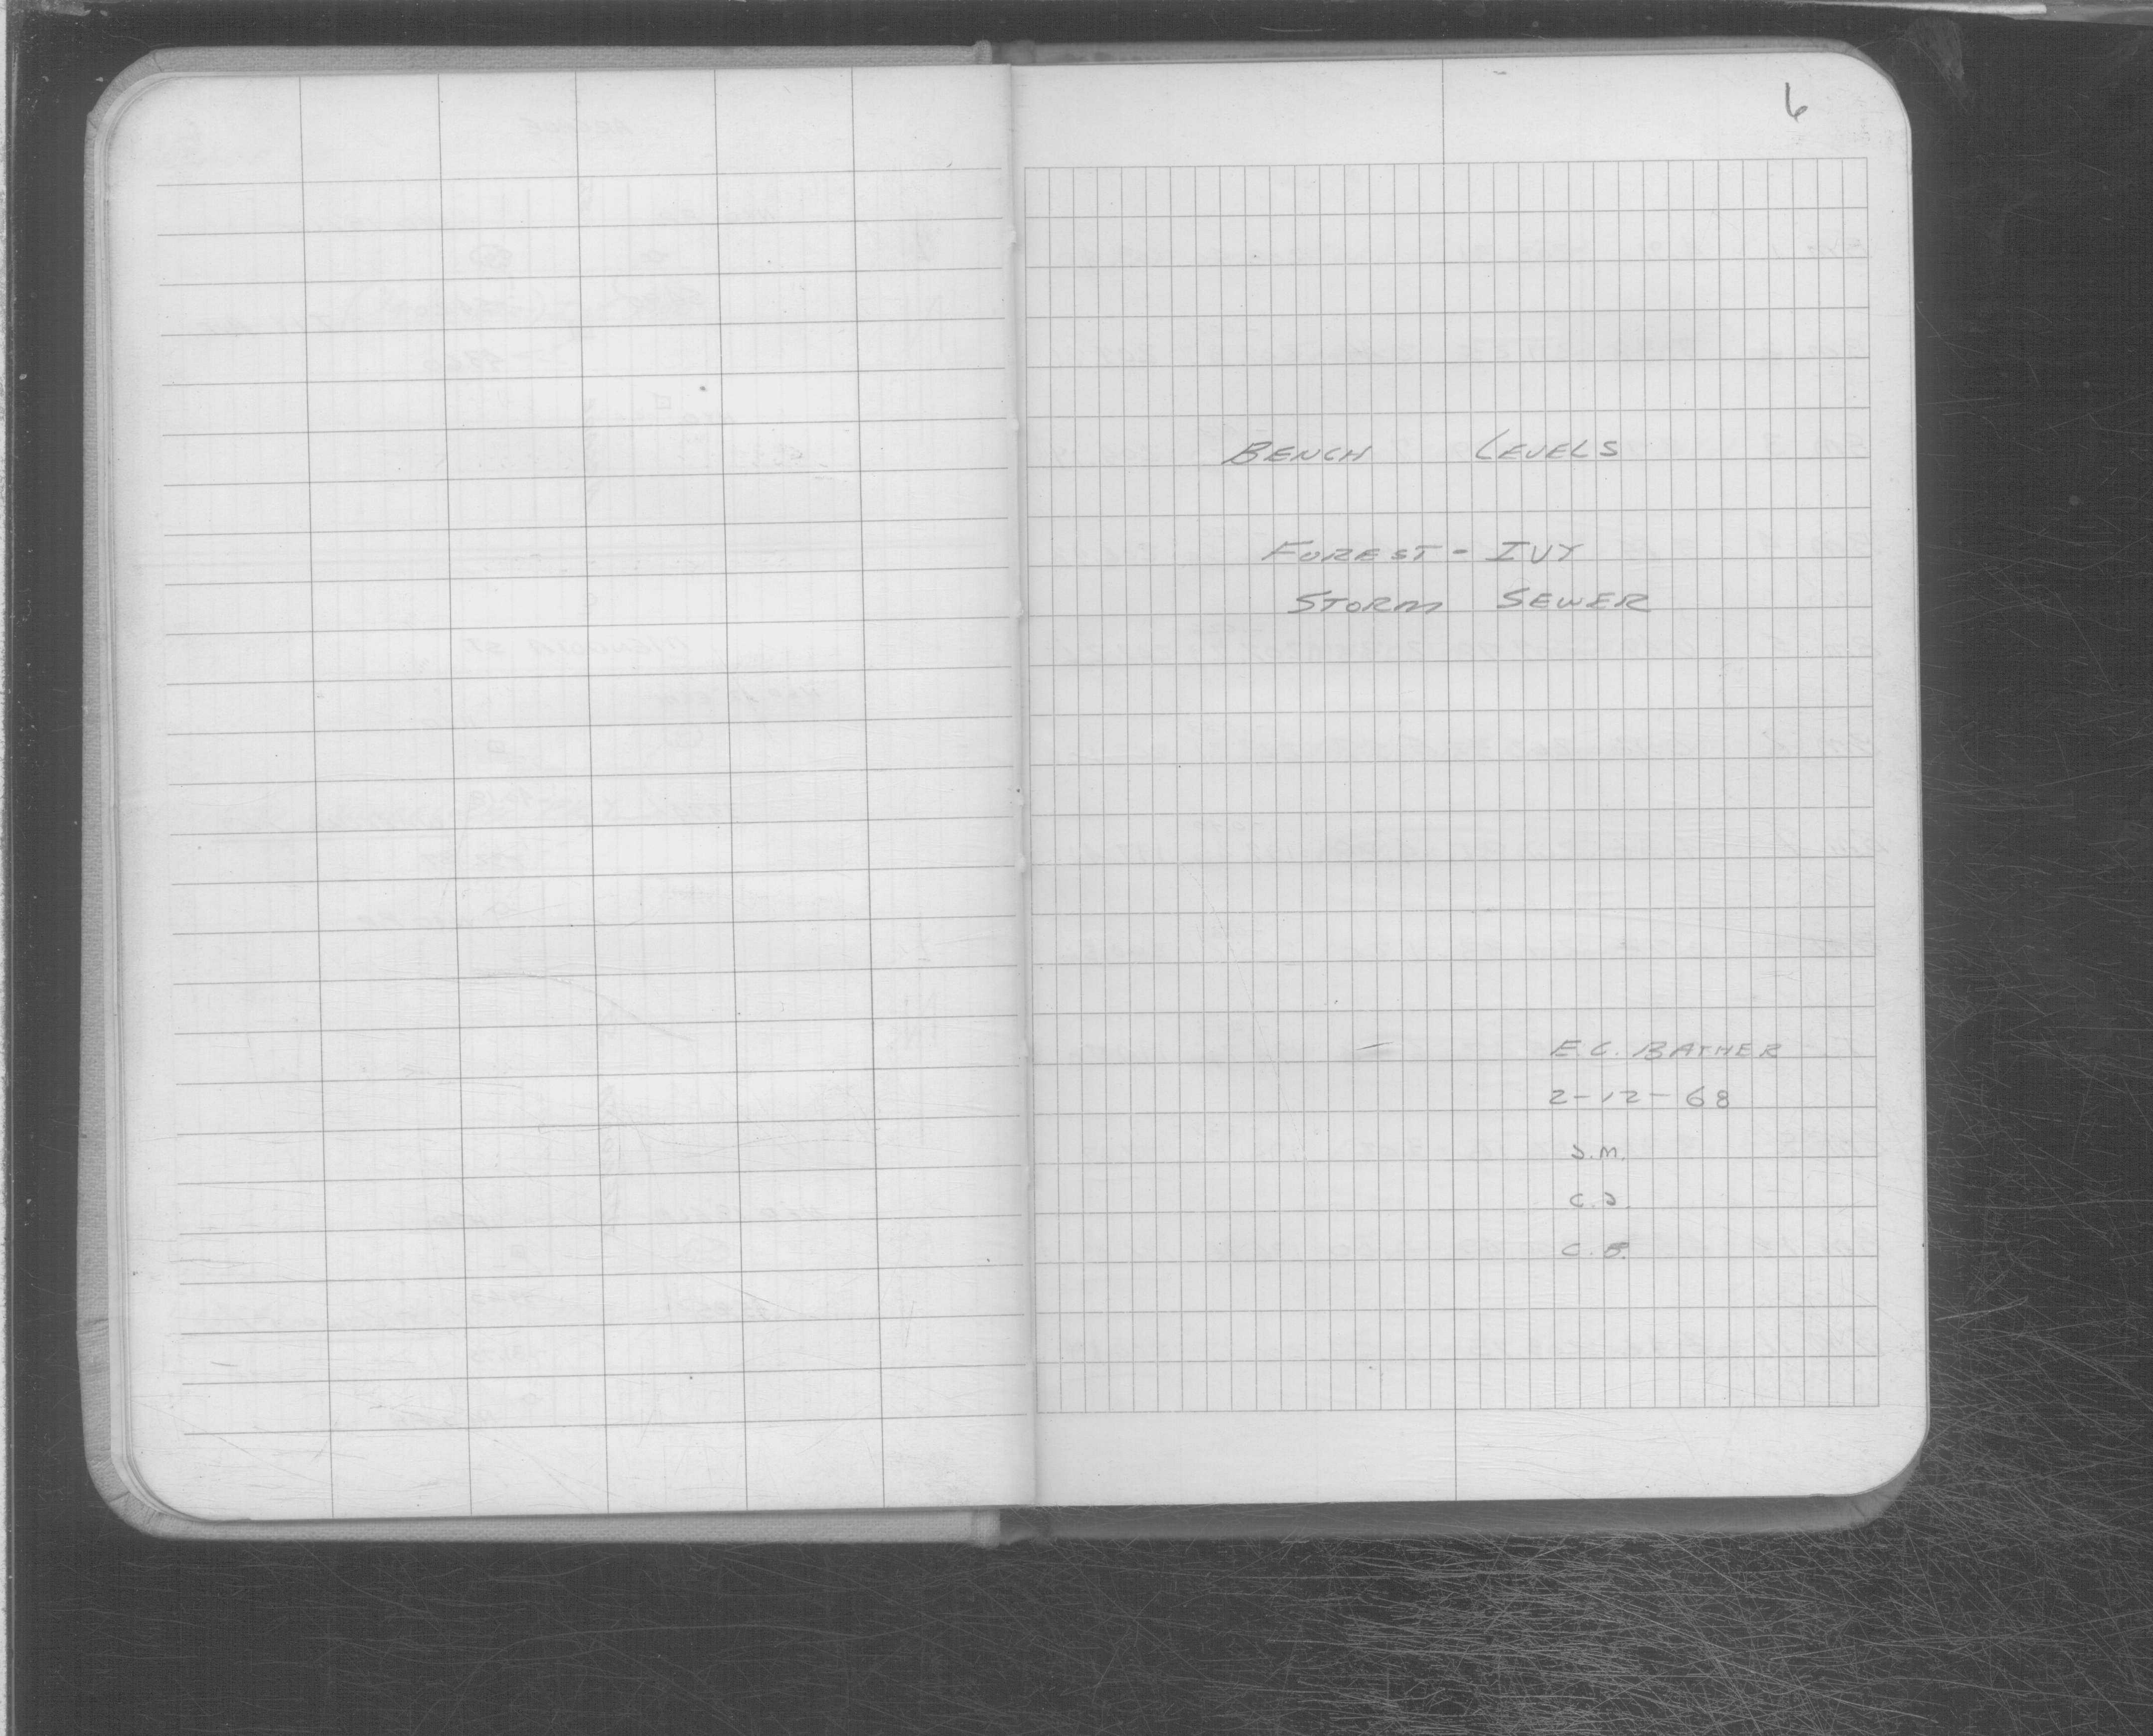 6
BENCH LEVELS
FOREST - IVY
STORM SEWER
E.C. BATHER
2-12-68
D.M.
C.D.
C.B.